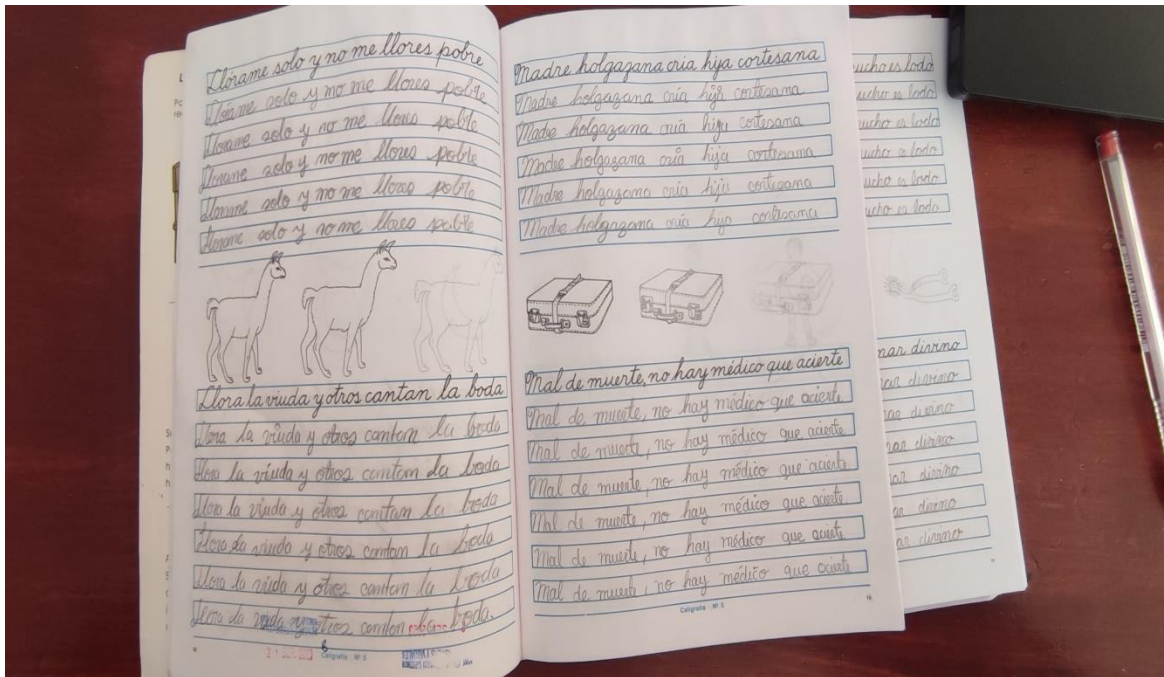 Llórame solo y no me llores pobre
Llórame solo y no me llores pobre
Llorame solo y no me llores pobre
Llorame solo y no me llores pobre
Llorame solo y no me llores pobre
Llorame solo y no me llores pobre
Llora la viuda y otros cantan la boda
Llora la viuda y otros cantan la boda
Llora la viuda y otros cantan la boda
Llora la viuda y otros cantan la boda
Llora la viuda y otros cantan la boda
Llora la viuda y otros cantan la boda
Llora la viuda y otros cantan la boda.
Caligrafía Nº 5
Madre holgazana cria hija cortesana
Madre holgazana cría hija cortesana
Madre holgazana cría hija cortesana
Madre holgazana cría hija cortesana
Madre holgazana cría hija cortesana
Madre holgazana cría hija cortesana
Mal de muerte, no hay médico que acierte
Mal de muerte, no hay médico que acierte
Mal de muerte, no hay médico que acierte
Mal de muerte, no hay médico que acierte
Mal de muerte, no hay médico que acierte
Mal de muerte, no hay médico que acierte
Mal de muerte, no hay médico que acierte
Caligrafía Nº 5
ucho es lodo
ucho es lodo
ucho es lodo
ucho es lodo
ucho es lodo
nar divino
nar divino
nar divino
nar divino
nar divino
ar divino
ar divino